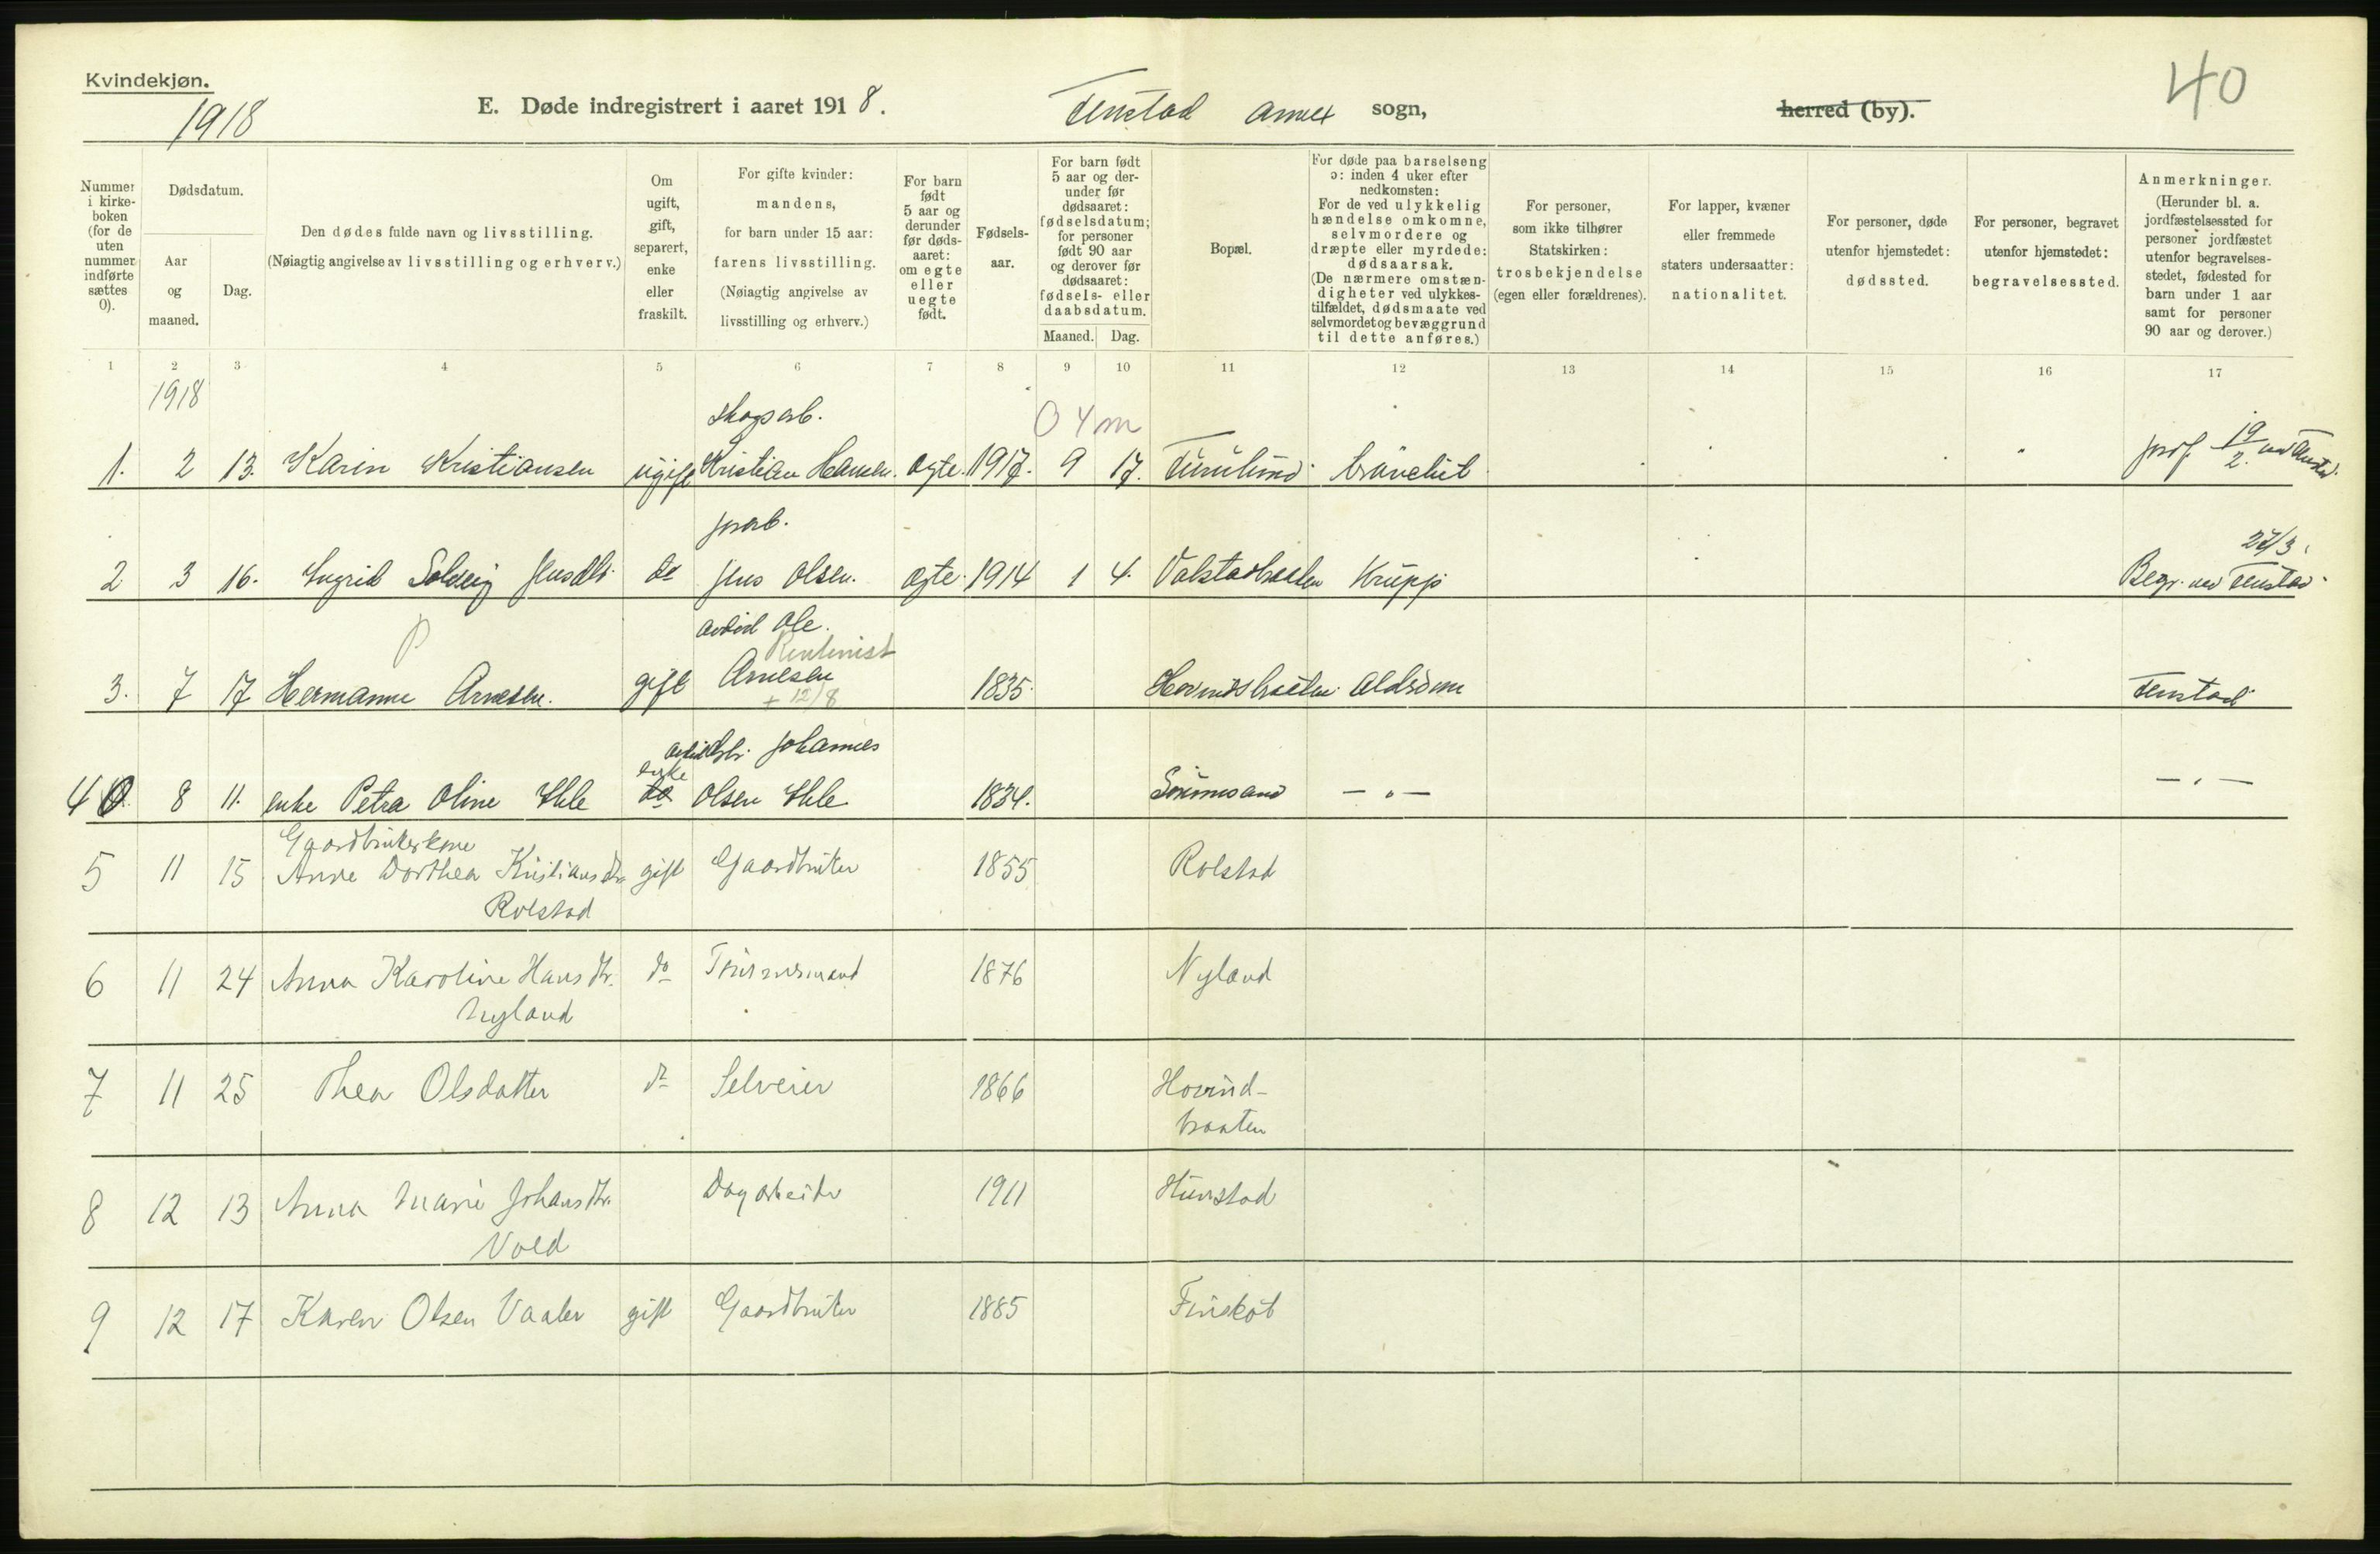 Kvindekjøn.
1918
E. Døde indregistrert i aaret 1918.
Tenstad annex sogn,
herred (by).
40
Nummer i kirkeboken (for de uten nummer indførte sættes 0).
Dødsdatum.
Aar og maaned.
Dag.
Den dødes fulde navn og livsstilling.
(Nøiagtig angivelse av livsstilling og erhverv.)
Om ugift, gift, separert, enke eller fraskilt.
For gifte kvinder: mandens, for barn under 15 aar: farens livsstilling.
(Nøiagtig angivelse av livsstilling og erhverv.)
For barn født 5 aar og derunder før dødsaaret: om egte eller uegte født.
Fødselsaar.
For barn født 5 aar og derunder før dødsaaret: fødselsdatum; for personer født 90 aar og derover før dødsaaret: fødsels- eller daabsdatum.
Maaned.
Dag.
Bopæl.
For døde paa barselseng ɔ: inden 4 uker efter nedkomsten:
For de ved ulykkelig hændelse omkomne, selvmordere og dræpte eller myrdede: dødsaarsak.
(De nærmere omstændigheter ved ulykkestilfældet, dødsmaate ved selvmordet og bevæggrund til dette anføres.)
For personer, som ikke tilhører Statskirken: trosbekjendelse (egen eller forældrenes).
For lapper, kvæner eller fremmede staters undersaatter: nationalitet.
For personer, døde utenfor hjemstedet: dødssted.
For personer, begravet utenfor hjemstedet: begravelsessted.
Anmerkninger.
(Herunder bl. a. jordfæstelsessted for personer jordfæstet utenfor begravelsesstedet, fødested for barn under 1 aar samt for personer 90 aar og derover.)
1 2 3 4 5 6 7 8 9 10 11 12 13 14 15 16 17
1918
Skogsarb. 0 4 m
1. 2 13. Karin Kristiansen ugift Kristian Hansen. ægte. 1917. 9 17. jordf. 19/2
27/3
2 3 16. Ingrid Solveig do Jens Olsen. ægte. 1914 1 4. Krupp Begr. ved Tenstad.
P
Ole. Rentenist
3. 7 17 Hermanne Arnesen. gift Arnesen 1835. Alderdom Tenstad
+ 12/8
Johannes
enke
4 0 8 11. enke Petra Oline do Olsen 1834. — „ — — „ —
Gaardbrukerkone
5 11 15 Anne Dorthea Kristiansdtr. gift Gaardbruker 1855 Rolstad
Rolstad
6 11 24 Anna Karoline Hansdtr. do Tømmermand 1876 Nyland
Nyland
7 11 25 Thea Olsdatter do Selveier 1866 Hovind-
braaten
8 12 13 Anna Marie Johansdtr. Dagarbeider 1911 Hunstad
Vold
9 12 17 Karen Olsen Vaaler gift Gaardbruker 1885